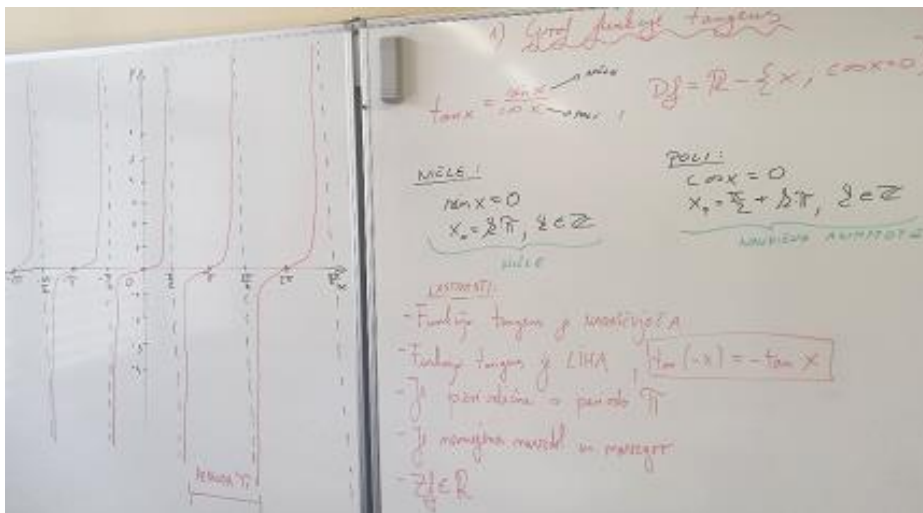 1) Graf funkcije tangens
tan x = sin x / cos x
Df = R - {x, cos x = 0
NIČLE:
sin x = 0
x₀ = kπ, k ∈ Z
NIČLE
POLI:
cos x = 0
xₚ = π/2 + kπ, k ∈ Z
NAVPIČNA ASIMPTOTA
LASTNOSTI:
- Funkcija tangens je NARAŠČAJOČA
- Funkcija tangens je LIHA, tan(-x) = -tan x
- Je periodična s periodo π
- Je neomejena navzdol in navzgor
- Zf ∈ R
PERIODA π